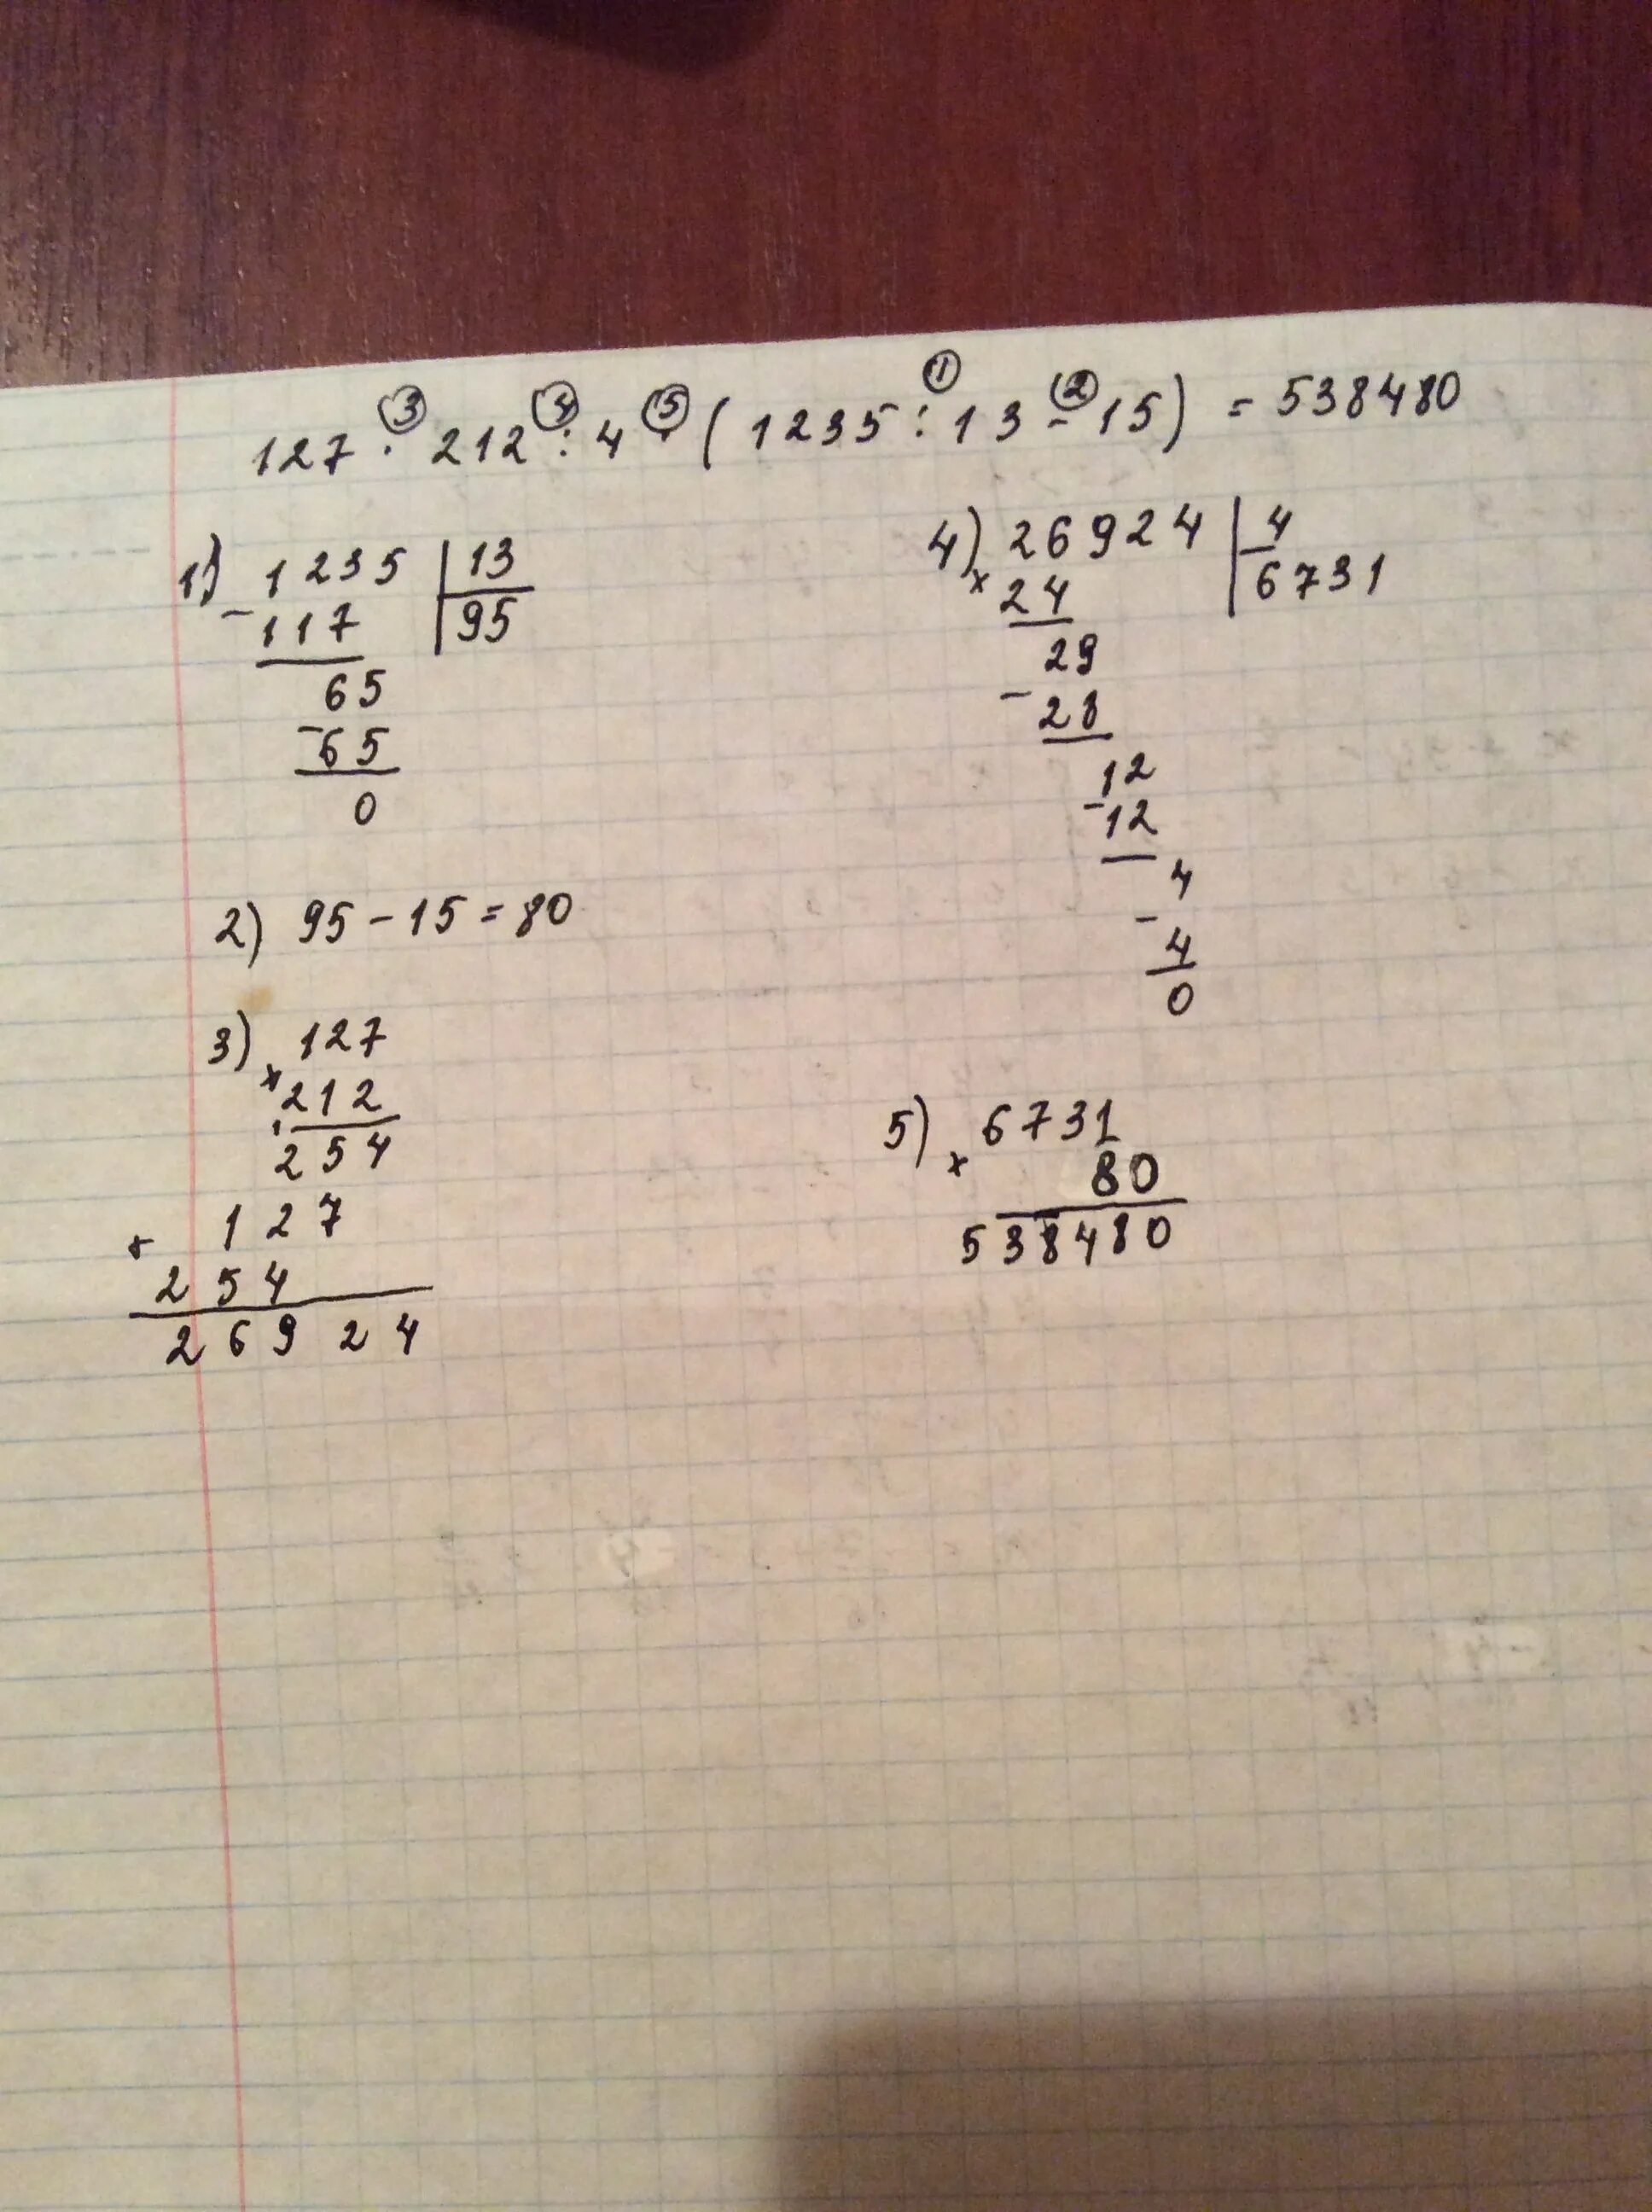 ③ ④ ⑤ ① ②
127 · 212 : 4 · ( 1235 : 13 - 15 ) = 538480
1) 1235 | 13
- 117 | 95
65
- 65
0
2) 95 - 15 = 80
3) 127
× 212
254
127
+ 254
26924
4) 26924 | 4
× 24 | 6731
29
- 28
12
- 12
4
- 4
0
5) 6731
× 80
538480